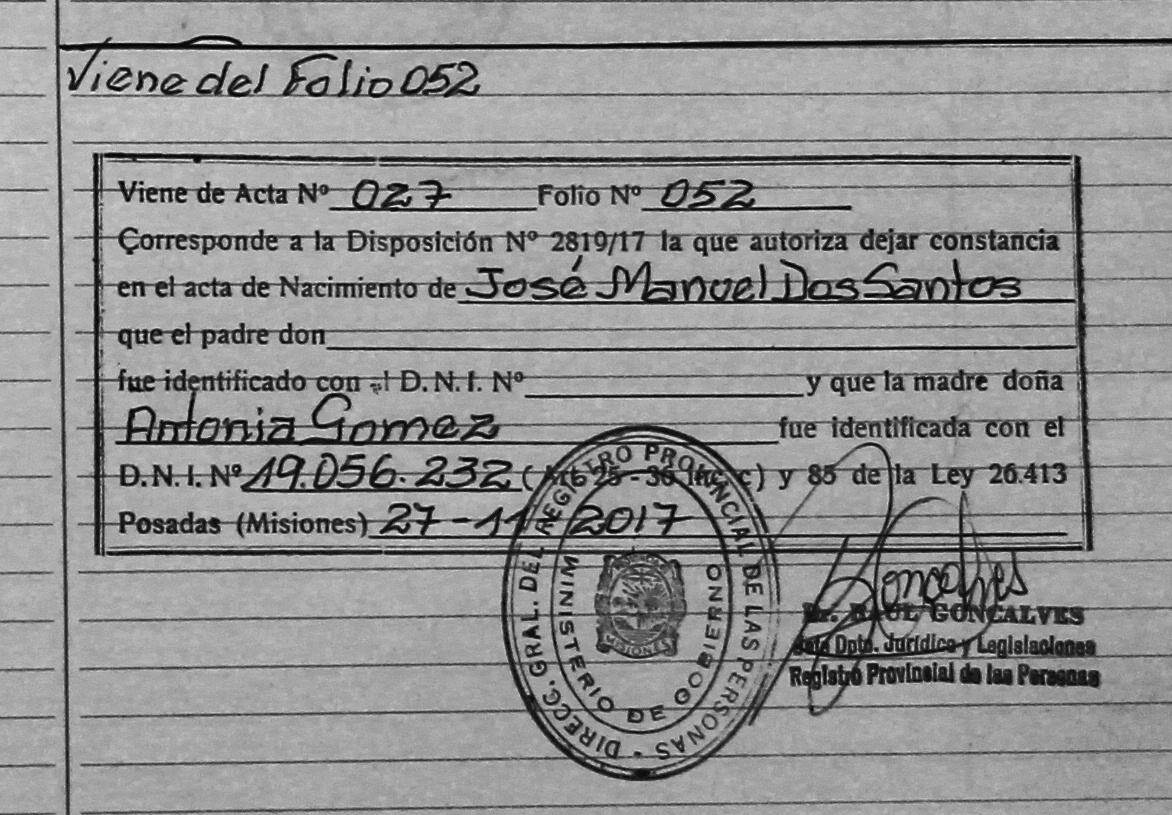 Viene del Folio 052
Viene de Acta Nº 027 Folio Nº 052
Corresponde a la Disposición Nº 2819/17 la que autoriza dejar constancia
en el acta de Nacimiento de José Manuel Dos Santos
que el padre don
fue identificado con el D. N. I. Nº y que la madre doña
Antonia Gomez fue identificada con el
D. N. I. Nº 19.056.232 ( Art 25 - 36 Inc. c) y 85 de la Ley 26.413
Posadas (Misiones) 27-11 2017
DIRECC. GRAL. DEL REGISTRO PROVINCIAL DE LAS PERSONAS -
MINISTERIO DE GOBIERNO
MISIONES
Goncalves
RAUL GONCALVES
Jefe Dpto. Jurídico y Legislaciones
Registro Provincial de las Personas